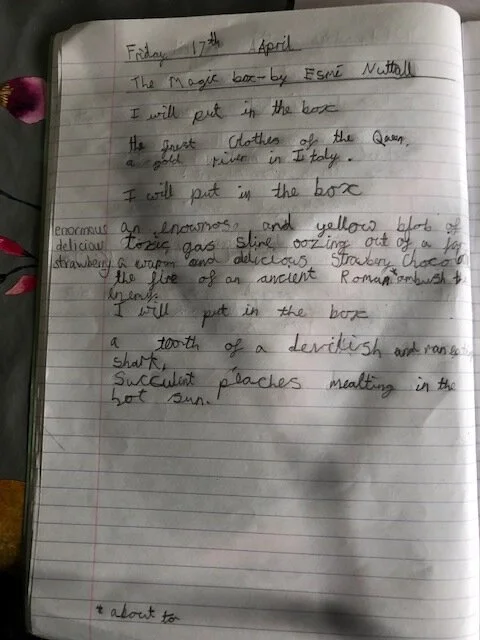 Friday 17th April
The Magic box - by Esmé Nuttall
I will put in the box
the finest Clothes of the Queen,
a gold river in Italy.
I will put in the box
enormous an enowmos and yellow blob of
delicious toxic gas Slime oozing out of a
strawberry a warm and delicious Strawbery Choco
the fire of an ancient Roman* ambush the
enemy.
I will put in the box
a tooth of a devilish and man
shark,
Succulent peaches mealting in the
hot sun.
* about to